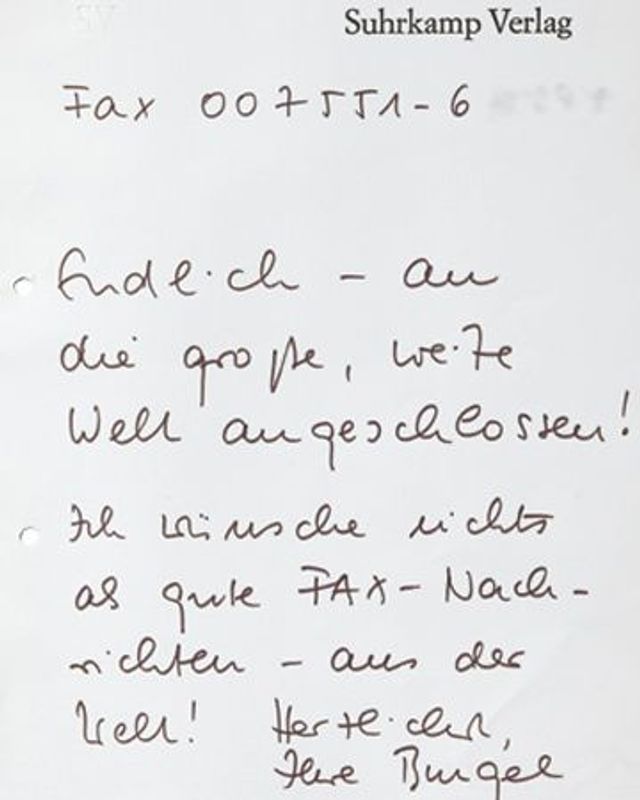 Suhrkamp Verlag
Fax 007551-6
Endlich - an
die große, weite
Welt angeschlossen!
Ich wünsche nichts
als gute FAX-Nach-
richten - aus der
Welt! Herzlichst,
Ihre Burgel